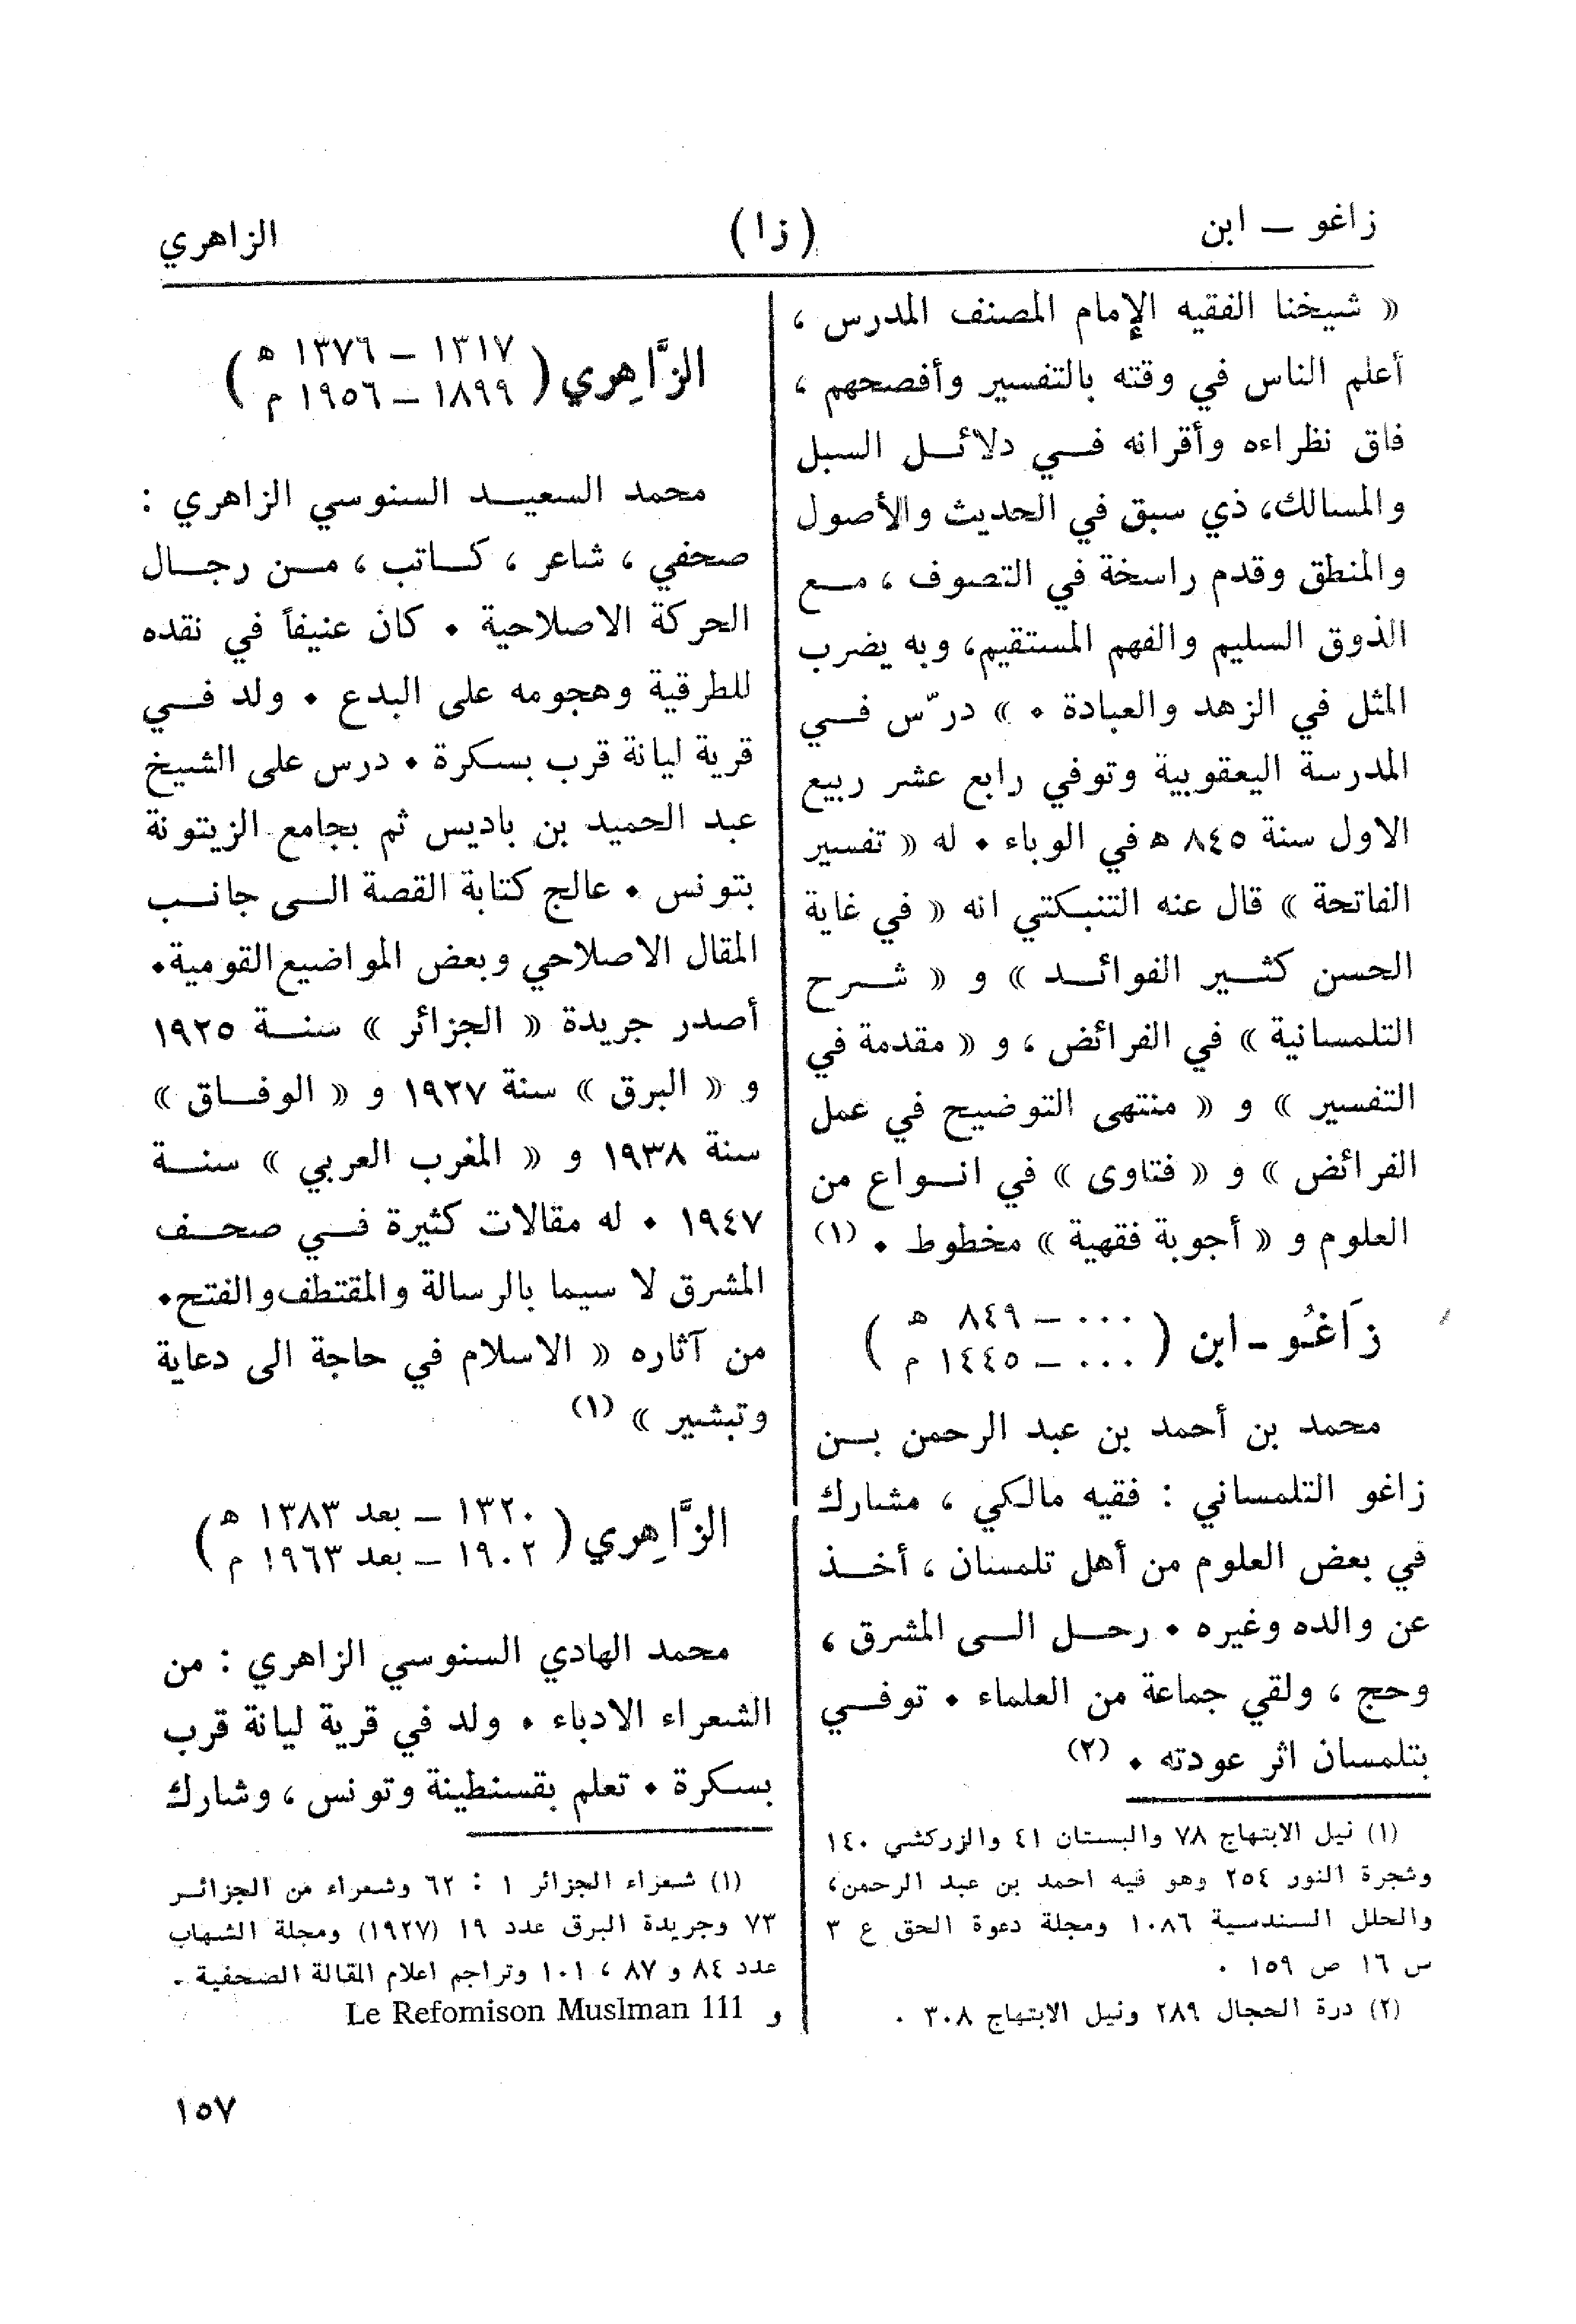 زاغو — ابن
(زا)
الزاهري
« شيخنا الفقيه الإمام المصنف المدرس ،
أعلم الناس في وقته بالتفسير وأفصحهم ،
فاق نظراءه وأقرانه فـــي دلائـــل السبل
والمسالك، ذي سبق في الحديث والأصول
والمنطق وقدم راسخة في التصوف ، مــع
الذوق السليم والفهم المستقيم، وبه يضرب
المثل في الزهد والعبادة . » درّس فــي
المدرسة اليعقوبية وتوفي رابع عشر ربيع
الاول سنة ٨٤٥ هـ في الوباء . له « تفسير
الفاتحة » قال عنه التنبكتي انه « في غاية
الحسن كثــير الفوائــد » و « شــرح
التلمسانية » في الفرائض ، و « مقدمة في
التفسير » و « منتهى التوضيح في عمل
الفرائض » و « فتاوى » في انــواع من
العلوم و « أجوبة فقهية » مخطوط . (١)
زَاغُو ـ ابن ( ٠٠٠ — ٨٤٩ هـ
٠٠٠ — ١٤٤٥ م )
محمد بن أحمد بن عبد الرحمن بــن
زاغو التلمساني : فقيه مالكي ، مشارك
في بعض العلوم من أهل تلمسان ، أخــذ
عن والده وغيره . رحــل الــى المشرق ،
وحج ، ولقي جماعة من العلماء . توفــي
بتلمسان اثر عودته . (٢)
(١) نيل الابتهاج ٧٨ والبستان ٤١ والزركشي ١٤٠
وشجرة النور ٢٥٤ وهو فيه احمد بن عبد الرحمن،
والحلل السندسية ١٠٨٦ ومجلة دعوة الحق ع ٣
س ١٦ ص ١٥٩ .
(٢) درة الحجال ٢٨٩ ونيل الابتهاج ٣٠٨ .
الزَّاهِري ( ١٣١٧ — ١٣٧٦ هـ
١٨٩٩ — ١٩٥٦ م )
محمد السعيــد السنوسي الزاهري :
صحفي ، شاعر ، كــاتب ، مــن رجــال
الحركة الاصلاحية . كان عنيفاً في نقده
للطرقية وهجومه على البدع . ولد فــي
قرية ليانة قرب بسكرة . درس على الشيخ
عبد الحميد بن باديس ثم بجامع الزيتونة
بتونس . عالج كتابة القصة الــى جانــب
المقال الاصلاحي وبعض المواضيع القومية.
أصدر جريدة « الجزائر » سنــة ١٩٢٥
و « البرق » سنة ١٩٢٧ و « الوفــاق »
سنة ١٩٣٨ و « المغرب العربي » سنــة
١٩٤٧ . له مقالات كثيرة فــي صحــف
المشرق لا سيما بالرسالة والمقتطف والفتح.
من آثاره « الاسلام في حاجة الى دعاية
وتبشير » (١)
الزَّاهِري ( ١٣٢٠ — بعد ١٣٨٣ هـ
١٩٠٢ — بعد ١٩٦٣ م )
محمد الهادي السنوسي الزاهري : من
الشعراء الادباء . ولد في قرية ليانة قرب
بسكرة . تعلم بقسنطينة وتونس ، وشارك
(١) شعراء الجزائر ١ : ٦٢ وشعراء من الجزائــر
٧٣ وجريدة البرق عدد ١٩ (١٩٢٧) ومجلة الشهاب
عدد ٨٤ و ٨٧ ، ١٠١ وتراجم اعلام المقالة الصحفية .
و Le Refomison Muslman 111
١٥٧